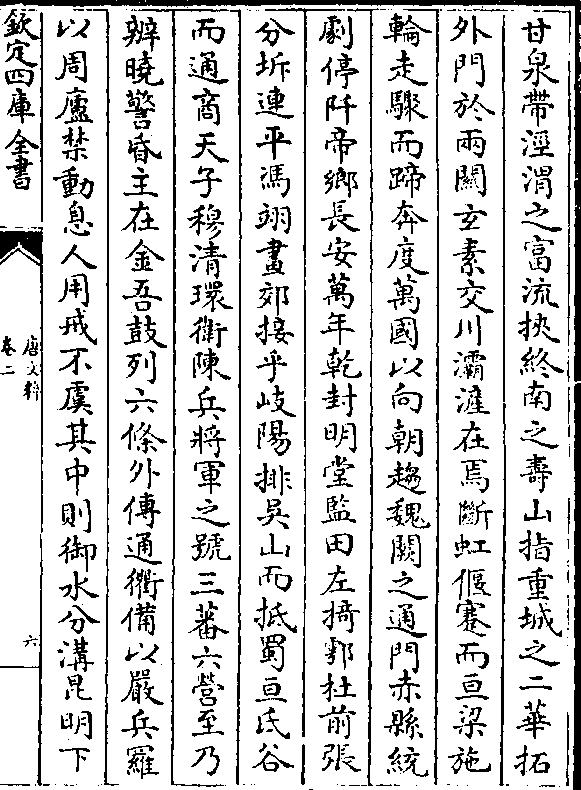 甘泉帶涇渭之富流挾終南之壽山指重城之二華拓
外門於兩關玄素交川灞滻在焉斷虹偃蹇而亘梁施
輪走驟而蹄奔度萬國以向朝趨魏闕之通門赤縣統
劇停阡帝鄉長安萬年乾封明堂監田左掎鄠杜前張
分坼連平馮翊畫郊接乎岐陽排吳山而抵蜀亘氐谷
而通商天子穆清環衛陳兵將軍之號三蕃六營至乃
辨曉警昏主在金吾鼓列六條外傳通衢備以嚴兵羅
以周廬禁動息人用戒不虞其中則御水分溝昆明下
欽定四庫全書
唐文粹
卷二
六